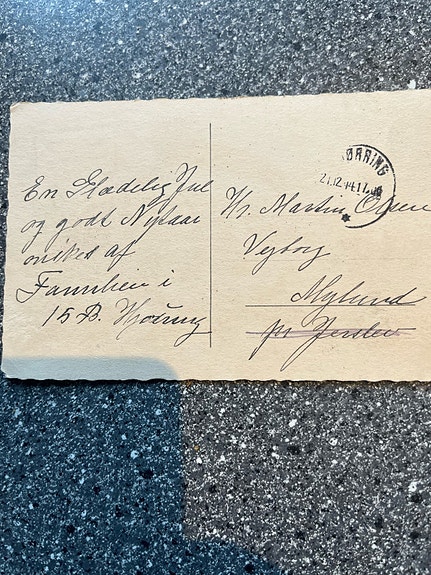 En Glædelig Jul
og godt Nytaar
ønskes af
Familien i
15 B. Hjørring
ØRRING
21.12
Hr. Martin Olsen
Vejborg
Mylund
pr Jerslev